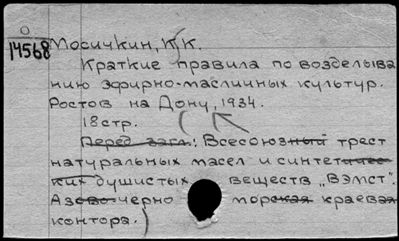 14568 Мосичкин, К.К.
Краткие правила по возделыва
нию эфирно-масличных культур.
Ростов на Дону, 1934.
18 стр.
(Перед загл.: Всесоюзный трест
натуральных масел и синтетичес-
ких душистых веществ "ВЭМСТ".
Азово-черноморская краевая
контора.)